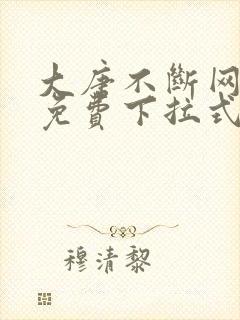 大唐不斷网
免費下拉式
穆清黎